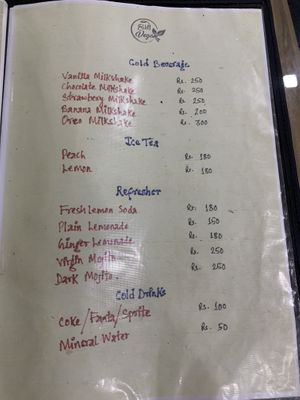 Vegan
Cold Beverage
Vanilla Milkshake Rs. 250
Chocolate Milkshake Rs. 250
Strawberry Milkshake Rs. 250
Banana Milkshake Rs. 200
Oreo Milkshake Rs. 300
Ice Tea
Peach Rs. 180
Lemon Rs. 180
Refresher
Fresh Lemon Soda Rs. 180
Plain Lemonade Rs. 150
Ginger Lemonade Rs. 180
Virgin Mojito Rs. 250
Dark Mojito. Rs. 250
Cold Drinks
Coke/Fanta/Sprite Rs. 100
Mineral Water Rs. 50